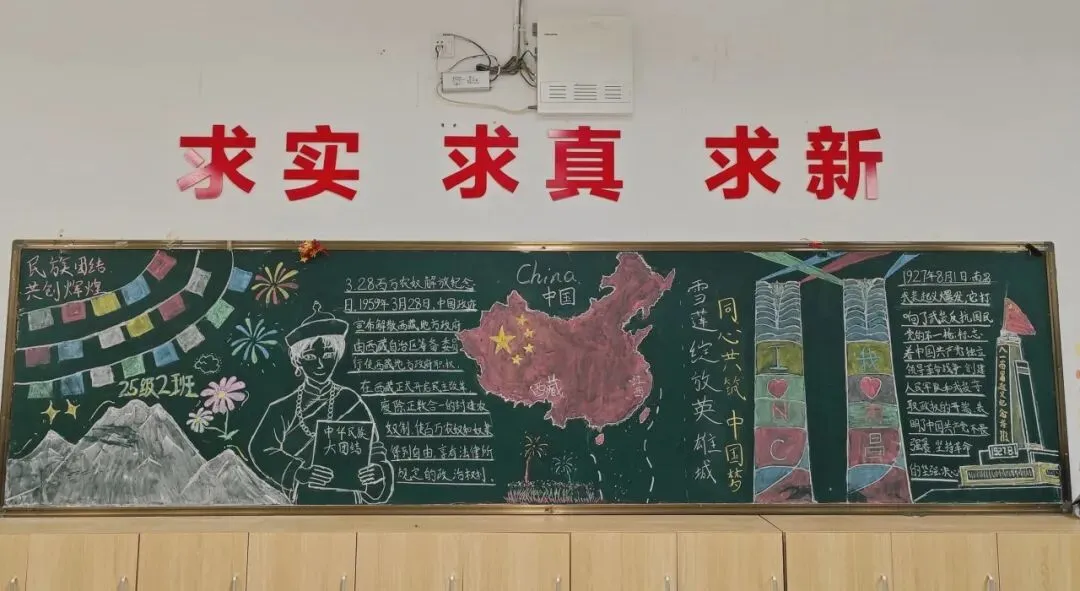 求实 求真 求新
民族团结
共创辉煌
25级2班
中华民族
大团结
3.28百万农奴解放纪念
日,1959年3月28日,中国政府
宣布解散西藏地方政府
由西藏自治区筹备委员
行使西藏地方政府职权,
在西藏正式开启民主改革
废除正联合一的封建农
奴制,使百万农奴和奴隶
得到自由,享有法律所
规定的政治权利.
China
中国
西藏
江西
雪莲绽放英雄城
同心共筑中国梦
I
N
C
我
昌
1927年8月1日,南昌
武装起义爆发,它打
响了武装反抗国民
党的第一枪,标志
着中国共产党独立
领导革命战争,创建
人民军队和武装夺
取政权的开端,表
明了中国共产党不畏
强暴,坚持革命
的坚强决心
八一南昌起义纪念塔
1927.8.1